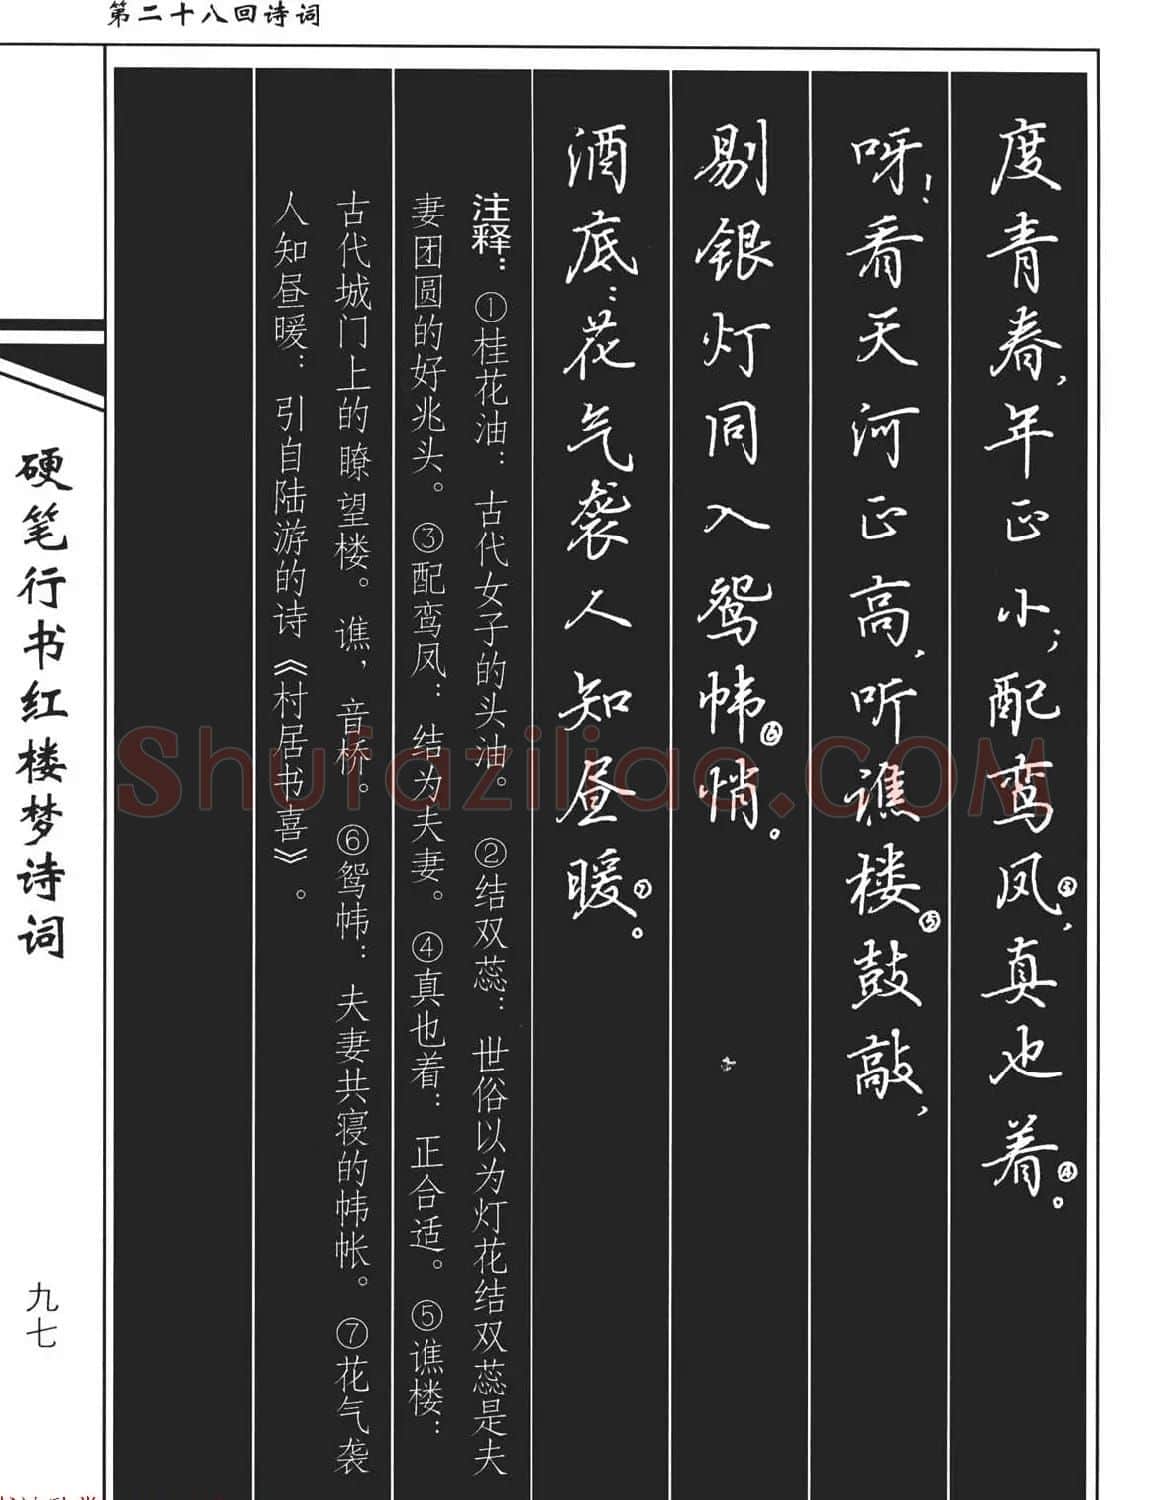 第二十八回诗词
度青春，年正小；配鸾凤③，真也着④。
呀！看天河正高，听谯楼⑤鼓敲，
剔银灯同入鸳帏⑥悄。
酒底：花气袭人知昼暖⑦。
注释：①桂花油：古代女子的头油。②结双蕊：世俗以为灯花结双蕊是夫
妻团圆的好兆头。③配鸾凤：结为夫妻。④真也着：正合适。⑤谯楼：
古代城门上的瞭望楼。谯，音桥。⑥鸳帏：夫妻共寝的帏帐。⑦花气袭
人知昼暖：引自陆游的诗《村居书喜》。
硬笔行书红楼梦诗词
九七
Shufaziliao.COM